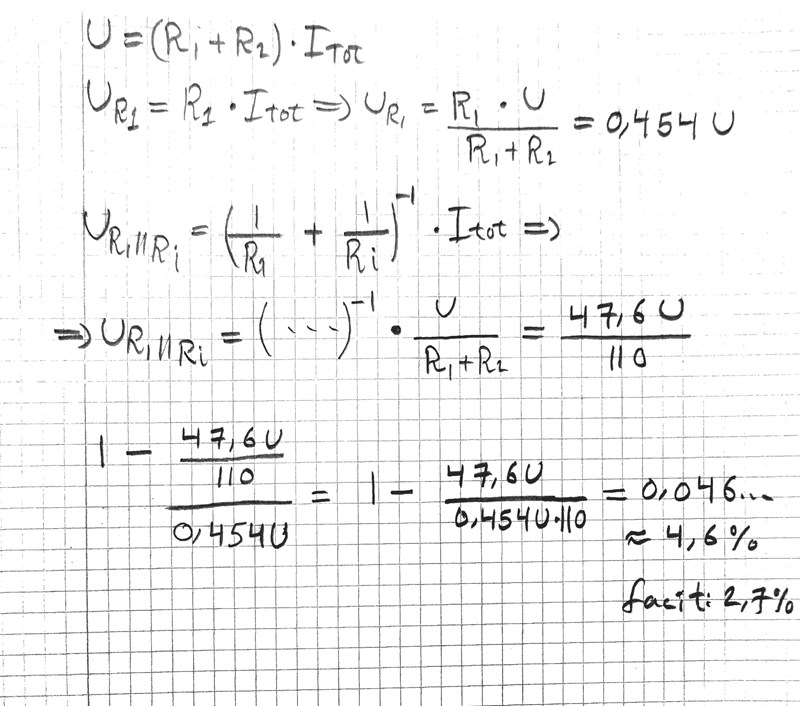 U = (R₁ + R₂) · I_TOT
U_R1 = R1 · I_tot ⇒ U_R₁ = R₁ · U / (R₁ + R₂) = 0,454 U
U_R₁||Ri = (1/R₁ + 1/Ri)⁻¹ · I_tot ⇒
⇒ U_R₁||Ri = (...)⁻¹ · U / (R₁ + R₂) = 47,6 U / 110
1 − (47,6 U / 110) / 0,454U = 1 − 47,6U / (0,454U·110) = 0,046...
≈ 4,6%
facit: 2,7%